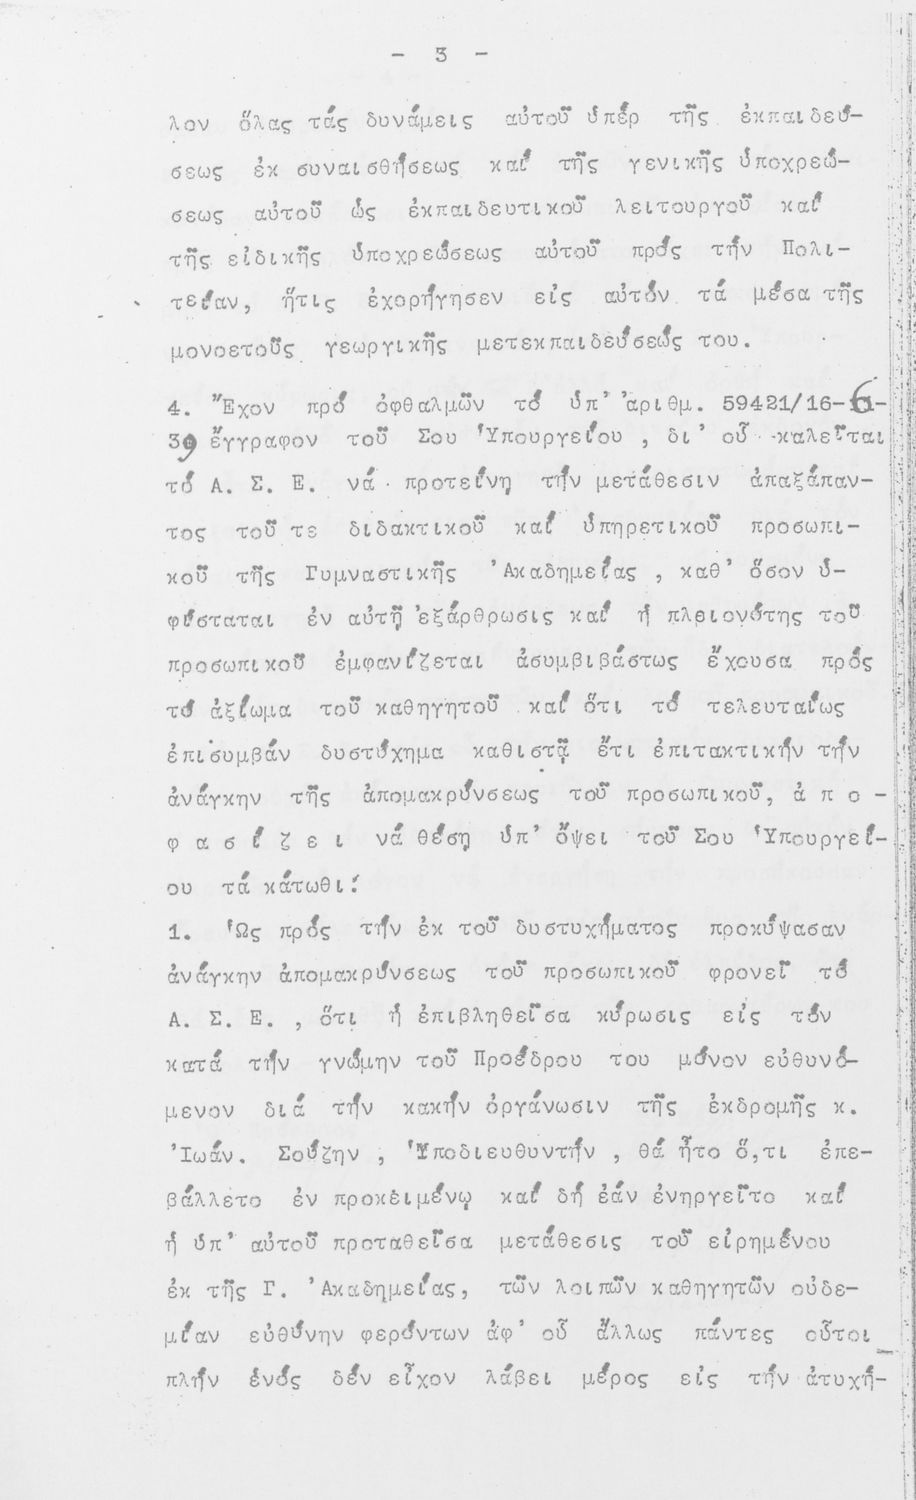 - 3 -
λον ὅλας τάς δυνάμεις αὐτοῦ ὑπέρ τῆς ἐκπαιδεύ-
σεως ἐκ συναισθήσεως καί τῆς γενικῆς ὑποχρεώ-
σεως αὐτοῦ ὡς ἐκπαιδευτικοῦ λειτουργοῦ καί
τῆς εἰδικῆς ὑποχρεώσεως αὐτοῦ πρός τήν Πολι-
τείαν, ἥτις ἐχορήγησεν εἰς αὐτόν τά μέσα τῆς
μονοετοῦς γεωργικῆς μετεκπαιδεύσεώς του.
4. Ἔχον πρό ὀφθαλμῶν τό ὑπ' ἀριθμ. 59421/16-6-
39 ἔγγραφον τοῦ Σου Ὑπουργείου, δι' οὗ καλεῖται
τό Α. Σ. Ε. νά προτείνῃ τήν μετάθεσιν ἁπαξάπαν-
τος τοῦ τε διδακτικοῦ καί ὑπηρετικοῦ προσωπι-
κοῦ τῆς Γυμναστικῆς Ἀκαδημείας, καθ' ὅσον ὑ-
φίσταται ἐν αὐτῇ ἐξάρθρωσις καί ἡ πλειονότης τοῦ
προσωπικοῦ ἐμφανίζεται ἀσυμβιβάστως ἔχουσα πρός
τό ἀξίωμα τοῦ καθηγητοῦ καί ὅτι τό τελευταίως
ἐπισυμβάν δυστύχημα καθιστᾷ ἔτι ἐπιτακτικήν τήν
ἀνάγκην τῆς ἀπομακρύνσεως τοῦ προσωπικοῦ, ἀ π ο -
φ α σ ί ζ ε ι νά θέσῃ ὑπ' ὄψει τοῦ Σου Ὑπουργεί-
ου τά κάτωθι:
1. Ὡς πρός τήν ἐκ τοῦ δυστυχήματος προκύψασαν
ἀνάγκην ἀπομακρύνσεως τοῦ προσωπικοῦ φρονεῖ τό
Α. Σ. Ε., ὅτι ἡ ἐπιβληθεῖσα κύρωσις εἰς τόν
κατά τήν γνώμην τοῦ Προέδρου του μόνον εὐθυνό-
μενον διά τήν κακήν ὀργάνωσιν τῆς ἐκδρομῆς κ.
Ἰωάν. Σούζην, Ὑποδιευθυντήν, θά ἦτο ὅ,τι ἐπε-
βάλλετο ἐν προκειμένῳ καί δή ἐάν ἐνηργεῖτο καί
ἡ ὑπ' αὐτοῦ προταθεῖσα μετάθεσις τοῦ εἰρημένου
ἐκ τῆς Γ. Ἀκαδημείας, τῶν λοιπῶν καθηγητῶν οὐδε-
μίαν εὐθύνην φερόντων ἀφ' οὗ ἄλλως πάντες οὗτοι
πλήν ἑνός δέν εἶχον λάβει μέρος εἰς τήν ἀτυχή-